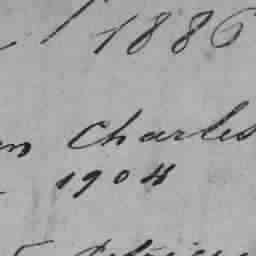 1886
Charles
1904